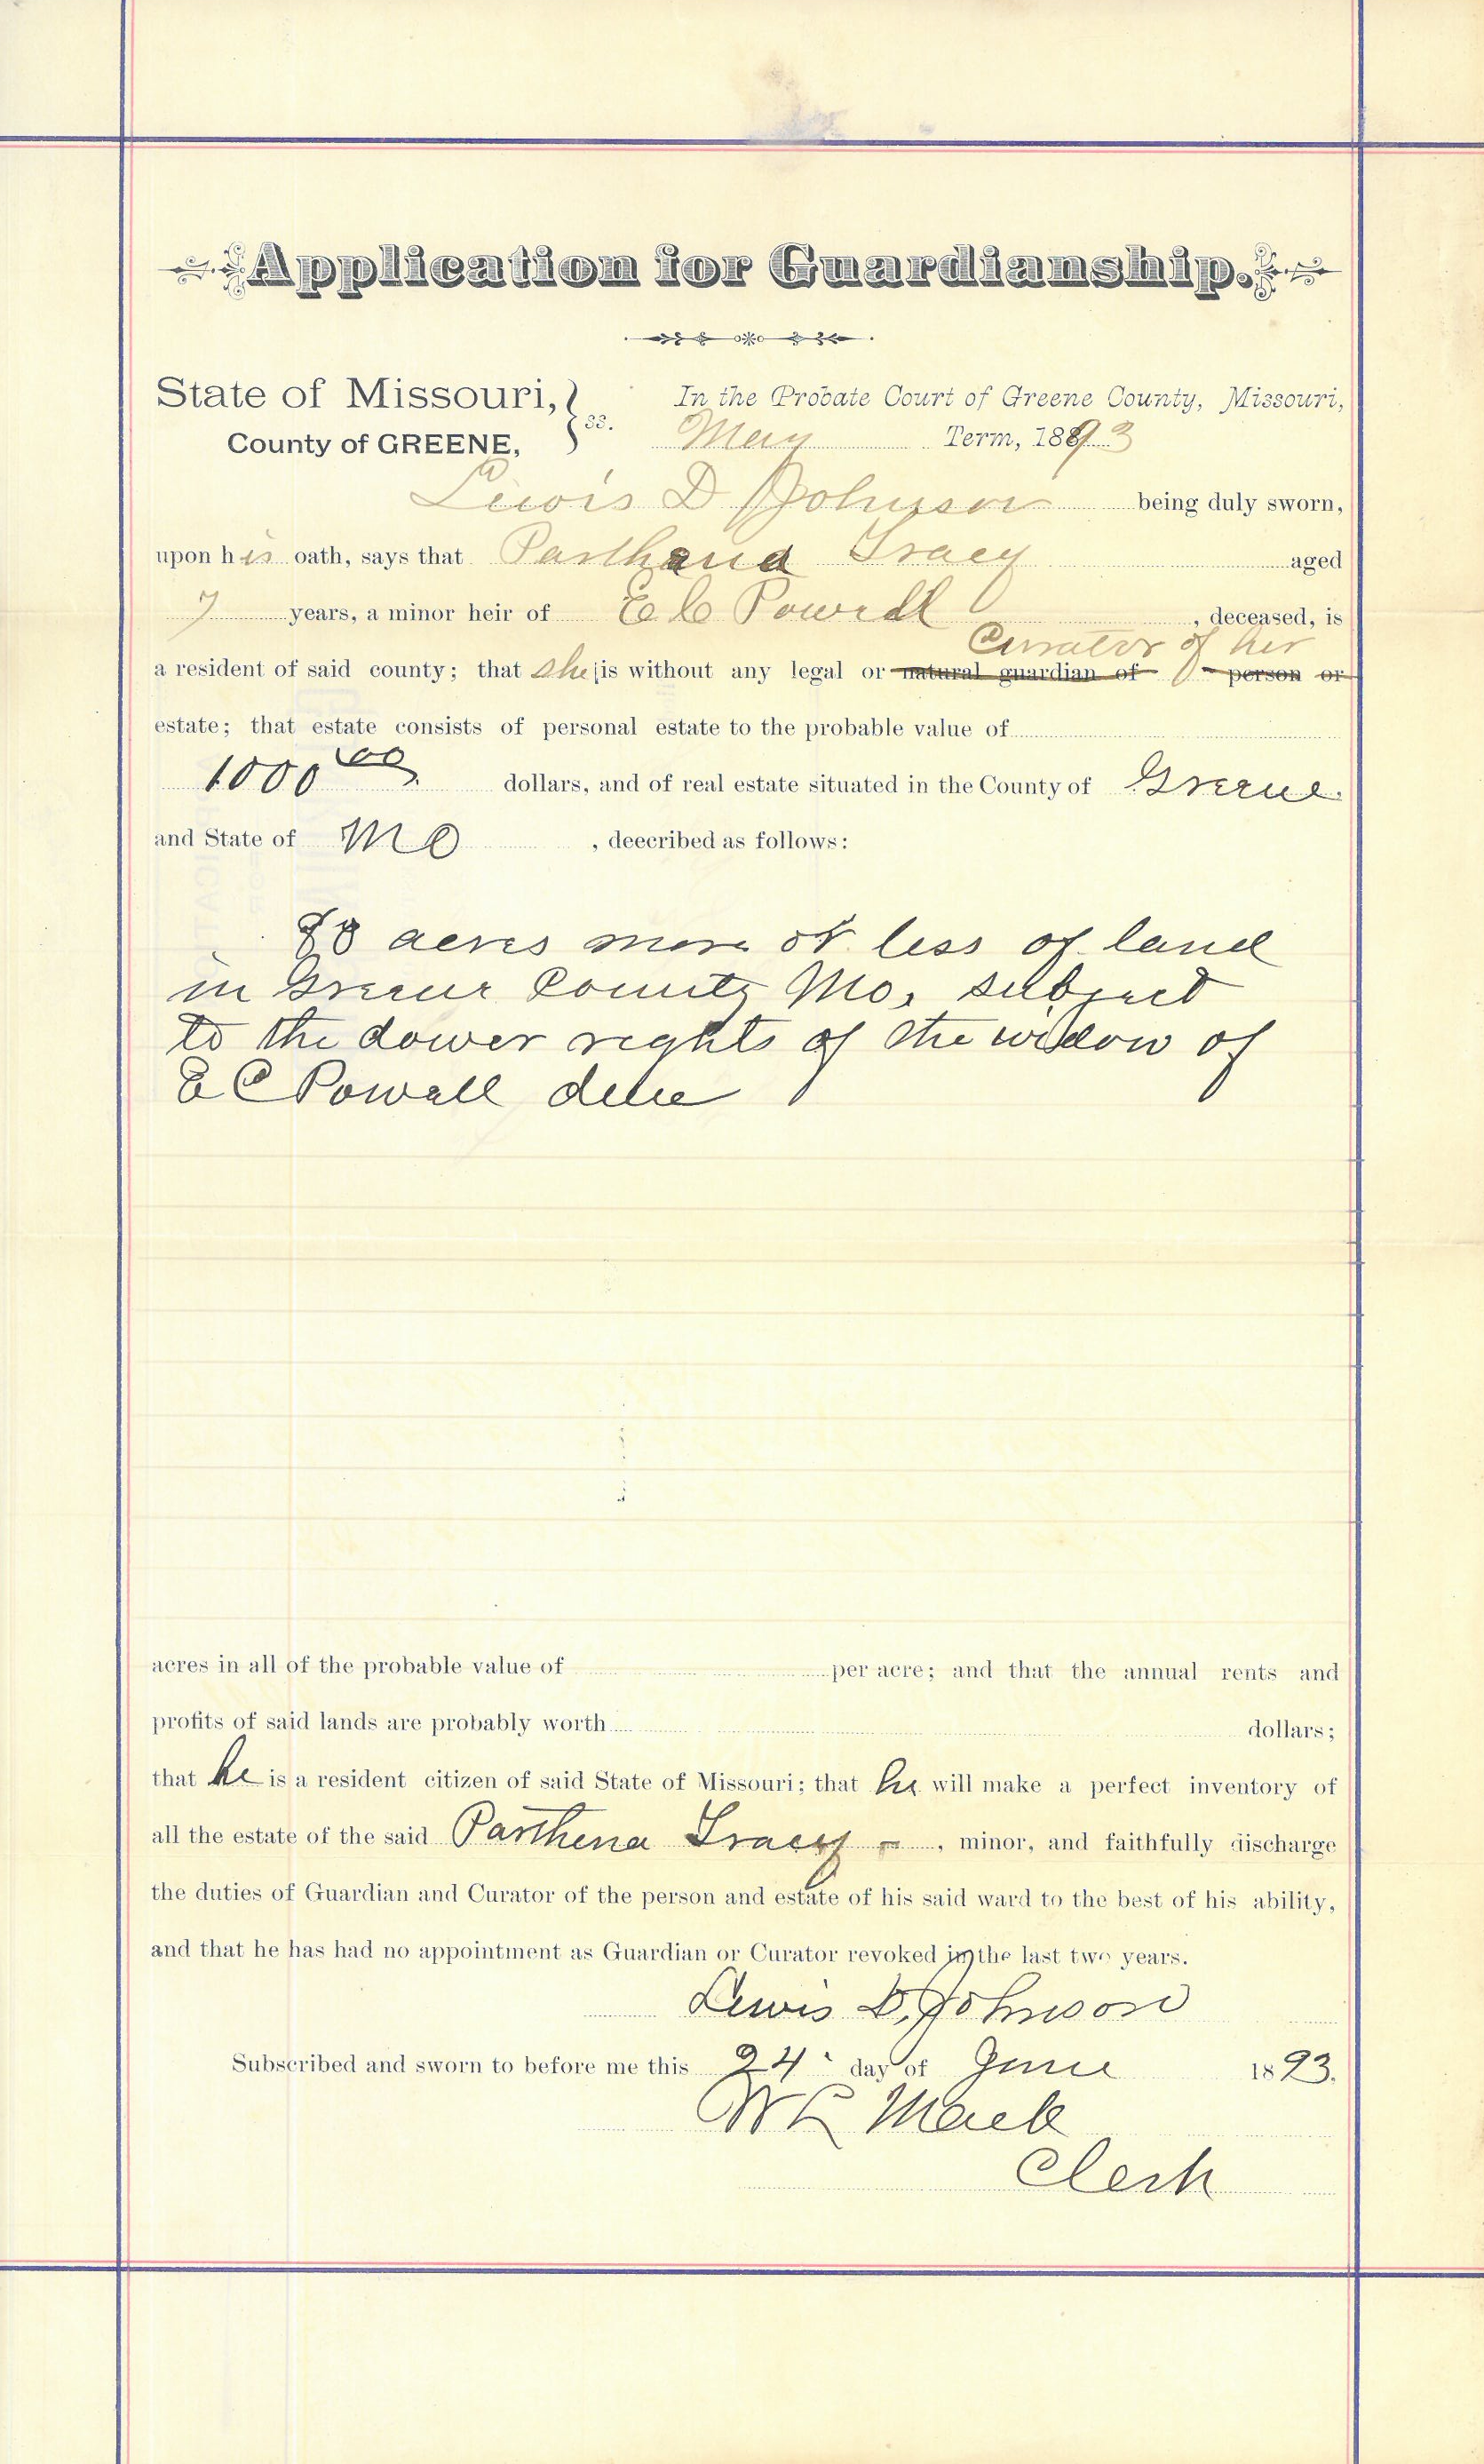 Application for Guardianship.
State of Missouri, } ss. In the Probate Court of Greene County, Missouri,
County of GREENE, May Term, 1893
Lewis D Johnson being duly sworn,
upon his oath, says that Parthena Tracy aged
7 years, a minor heir of E C Powell, deceased, is
Curator of her
a resident of said county; that she is without any legal or natural guardian of person or
estate; that estate consists of personal estate to the probable value of
1000 00 dollars, and of real estate situated in the County of Greene.
and State of Mo, deecribed as follows:
80 acres more or less of land
in Greene County Mo, subject
to the dower rights of the widow of
E C Powell
acres in all of the probable value of per acre; and that the annual rents and
profits of said lands are probably worth dollars;
that he is a resident citizen of said State of Missouri; that he will make a perfect inventory of
all the estate of the said Parthena Tracy -, minor, and faithfully discharge
the duties of Guardian and Curator of the person and estate of his said ward to the best of his ability,
and that he has had no appointment as Guardian or Curator revoked in the last two years.
Lewis D. Johnson
Subscribed and sworn to before me this 24 day of June 1893.
Mack
Clerk